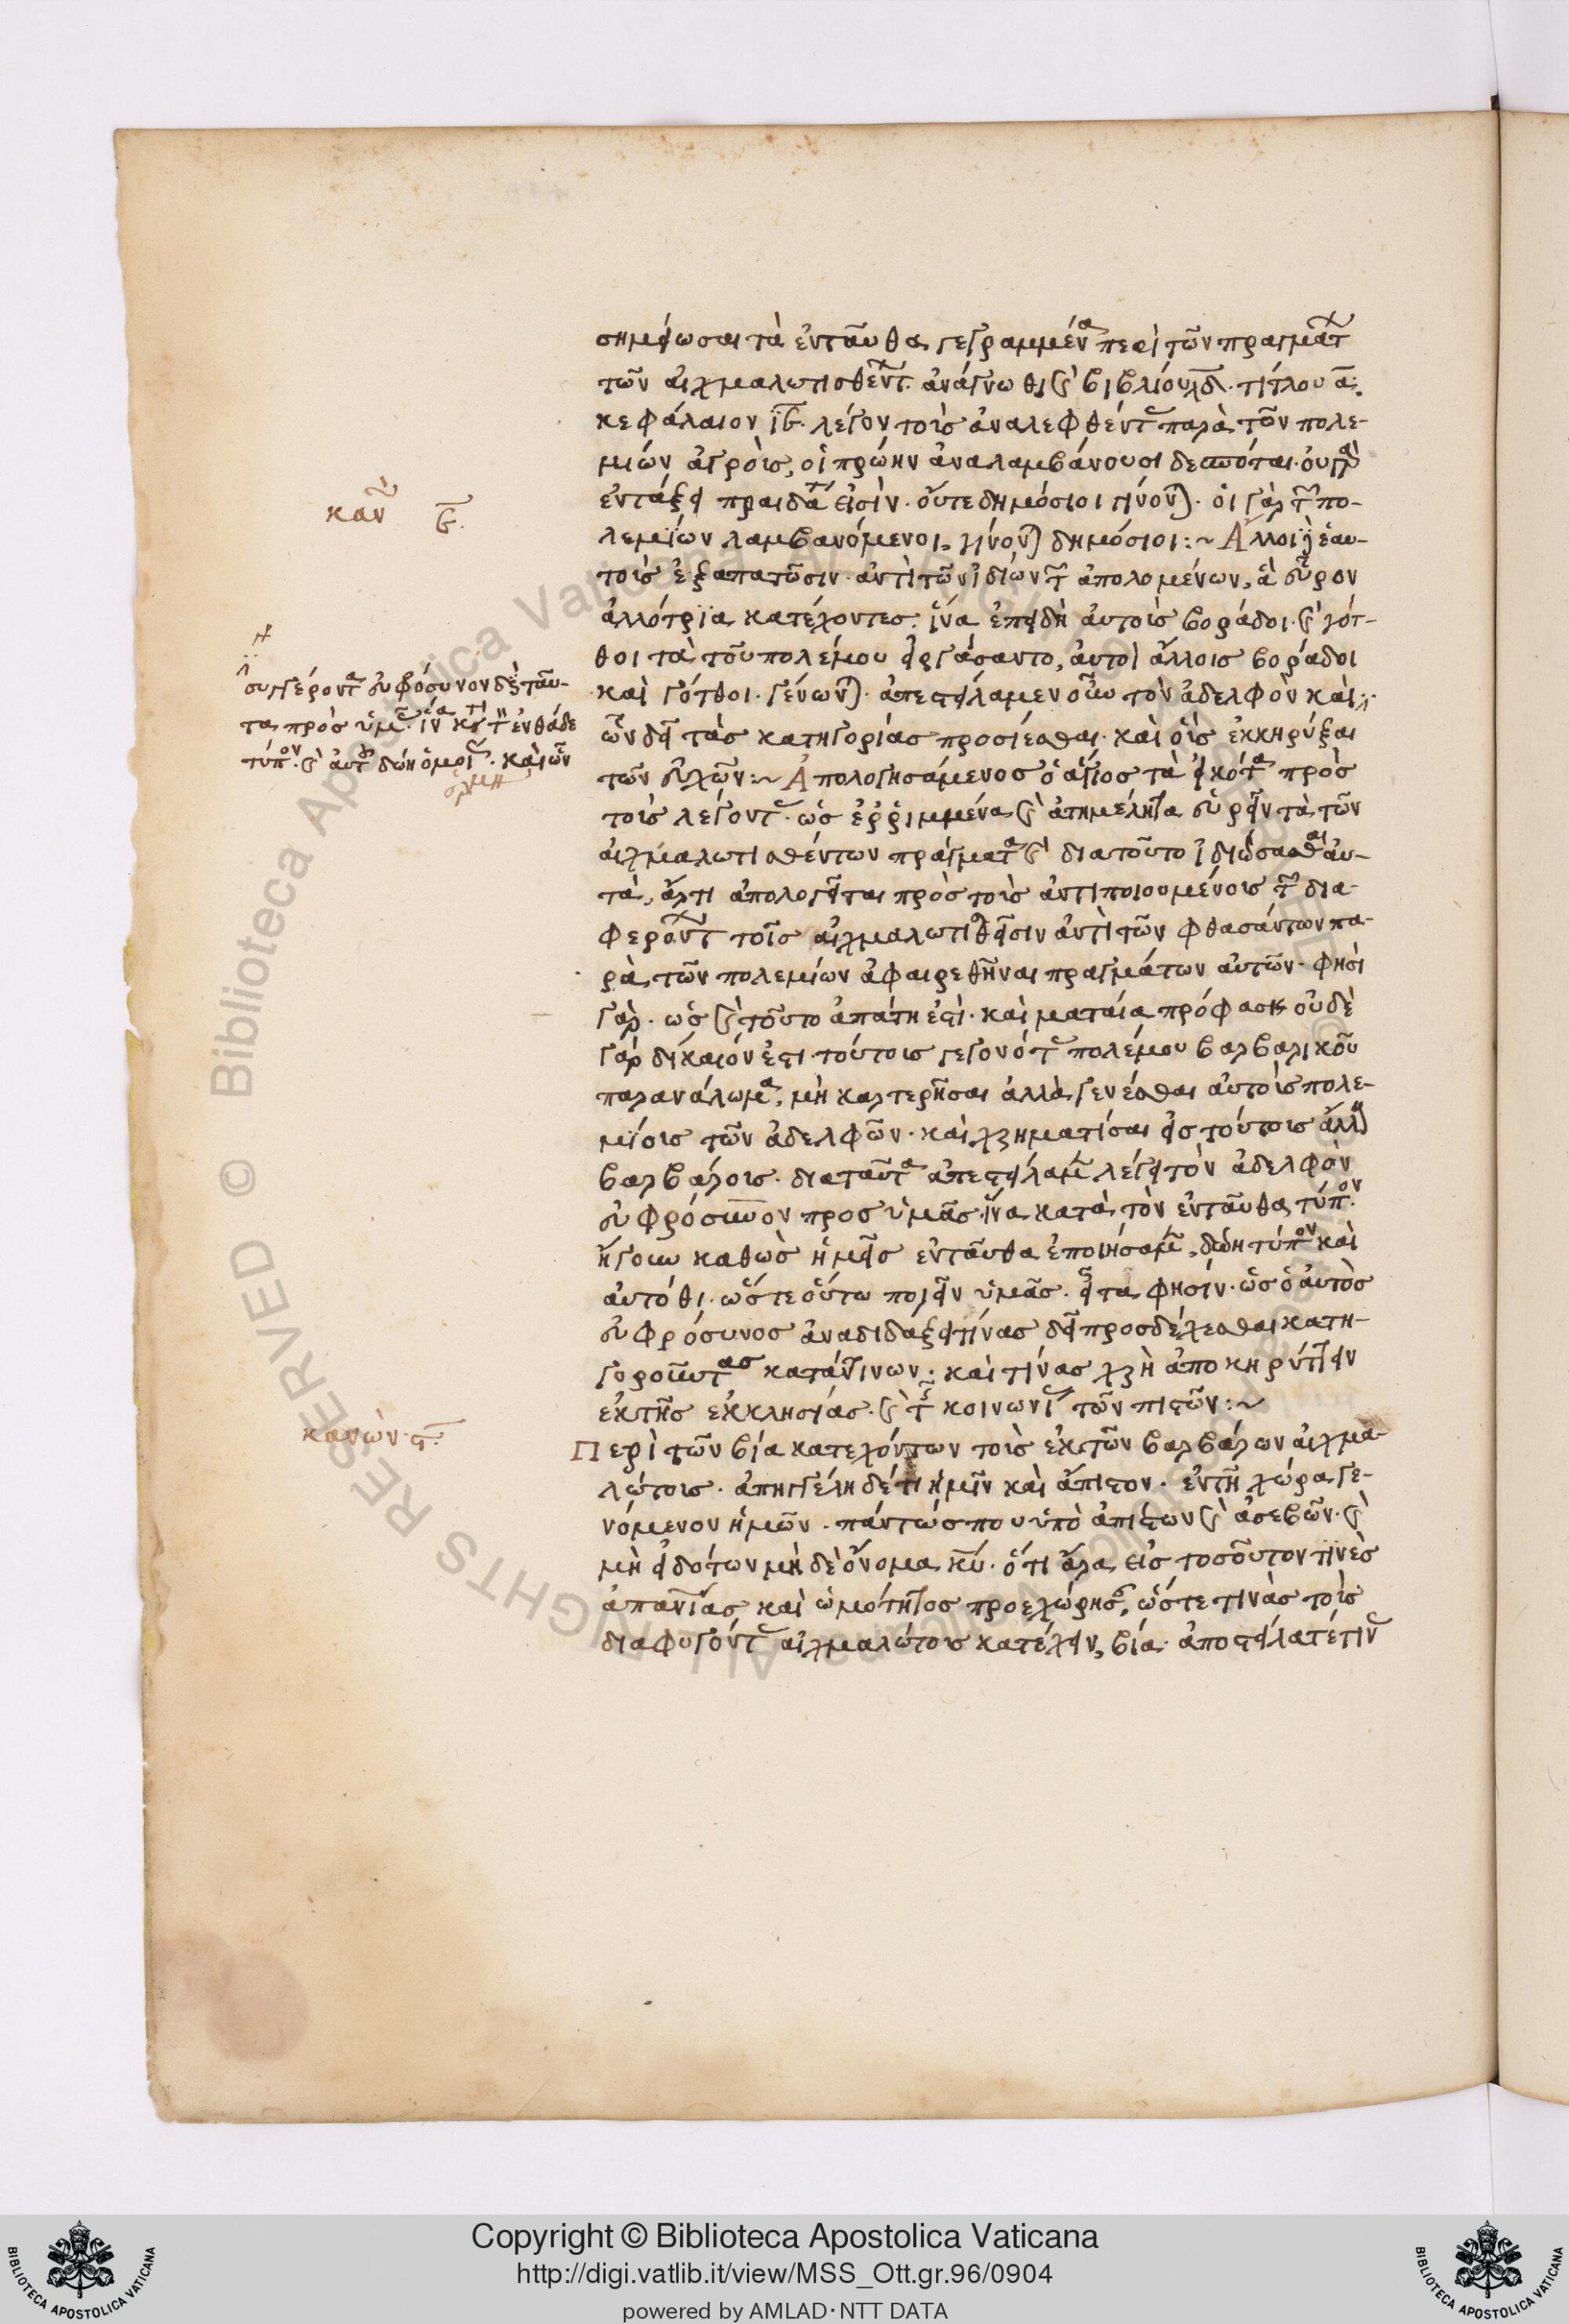 σημείωσαι τὰ ἐνταῦθα γεγραμμένα περὶ τῶν πραγμάτ
τῶν αἰχμαλωτισθέντ. ἀνάγνωθι καὶ βιβλίου τίτλου α:
κεφάλαιον ιβ. λέγον τοὺς ἀναλειφθέντ παρὰ τῶν πολε-
μίων ἀγροὺς, οἱ πρώην ἀναλαμβάνουσι δεσπόται. οὐ γὰρ
ἐν τάξει πραίδα εἰσίν. οὔτε δημόσιοι γίνον). οἱ γὰρ τ πο-
λεμίων λαμβανόμενοι, γίνον) δημόσιοι :~ Ἄλλοι ἑαυ-
τοὺς ἐξαπατῶσιν. ἀντὶ τῶν ἰδίων τ ἀπολομένων, ἃ εὗρον
ἀλλότρια κατέχοντες. ἵνα ἐπειδὴ αὐτοὺς βοράδοι. καὶ γότ-
θοι τὰ τοῦ πολέμου εἰργάσαντο, αὐτοὶ ἄλλοις βοράδοι
καὶ γότθοι. γένων). ἀπεστείλαμεν οὖν τὸν ἀδελφὸν καὶ
ὧν δεῖ τὰς κατηγορίας προσίεσθαι. καὶ οὓς ἐκκηρύξαι
τῶν εὐχῶν :~ Ἀπολογησάμενος ὁ ἅγιος τὰ εἰκότα πρὸς
τοὺς λέγοντ. ὡς ἐρριμμένα καὶ ἀτημέλητα εὑρεῖν τὰ τῶν
αἰχμαλωτισθέντων πράγματα καὶ διατοῦτο ἰδιώσασθαι αὐ-
τὰ, ἄρτι ἀπολογεῖται πρὸς τοὺς ἀντιποιουμένους τ δια-
φερόντ τοῖς αἰχμαλωτισθεῖσιν ἀντὶ τῶν φθασάντων πα-
ρὰ τῶν πολεμίων ἀφαιρεθῆναι πραγμάτων αὐτῶν. φησὶ
γὰρ. ὡς καὶ τοῦτο ἀπάτη ἐστὶ. καὶ ματαία πρόφασις οὐδὲ
γὰρ δίκαιόν ἐστι. τούτους γεγονότ πολέμου βαρβαρικοῦ
παρανάλωμα, μὴ καρτερῆσαι ἀλλὰ γενέσθαι αὐτοὺς πολε-
μίους τῶν ἀδελφῶν. καὶ χρηματίσαι εἰς τούτους ἄλλ
βαρβάρους. διαταῦτα ἀπεστείλαμ λέγει τὸν ἀδελφὸν
εὐφρόσυνον προς ὑμᾶς. ἵνα κατὰ τὸν ἐνταῦθα τύπον.
ἤγουν καθὼς ἡμεῖς ἐνταῦθα ἐποιήσαμ, δώη τύπον καὶ
αὐτόθι. ὥστε οὕτω ποιεῖν ὑμᾶς. εἶτα φησίν. ὡς ὁ αὐτὸς
εὐφρόσυνος ἀναδιδάξει τίνας δεῖ προσδέχεσθαι κατη-
γοροῦντας κατάτινων. καὶ τίνας χρὴ ἀποκηρύττειν
ἐκ τῆς ἐκκλησίας. καὶ τ κοινωνί τῶν πιστῶν :~
Περὶ τῶν βία κατεχόντων τοὺς ἐκ τῶν βαρβάρων αἰχμα-
λώτους. ἀπηγγέλη δέ τι ἡμῖν καὶ ἄπιστον. ἐν τῇ χώρα γε-
νόμενον ἡμῶν. πάντως που ὑπὸ ἀπίστων καὶ ἀσεβῶν. καὶ
μὴ εἰδότων μὴ δὲ ὄνομα κυ. ὅτι ἄρα εἰς τοσοῦτον τινὲς
ἀπανίας καὶ ὠμότητος προεχώρησ, ὥστε τινὰς τοὺς
διαφυγόντ αἰχμαλώτους κατέχειν, βία. ἀποστείλατέ τιν
καν β.
συγγέροντα εὐφρόσυνον δὲ ταῦ-
τα πρὸς ὑμ. ἵνα κατὰ τ ἐνθάδε
τύπον. καὶ αὐτ δώη ὁμοί. καὶ ὧν
κανὼν. γ.